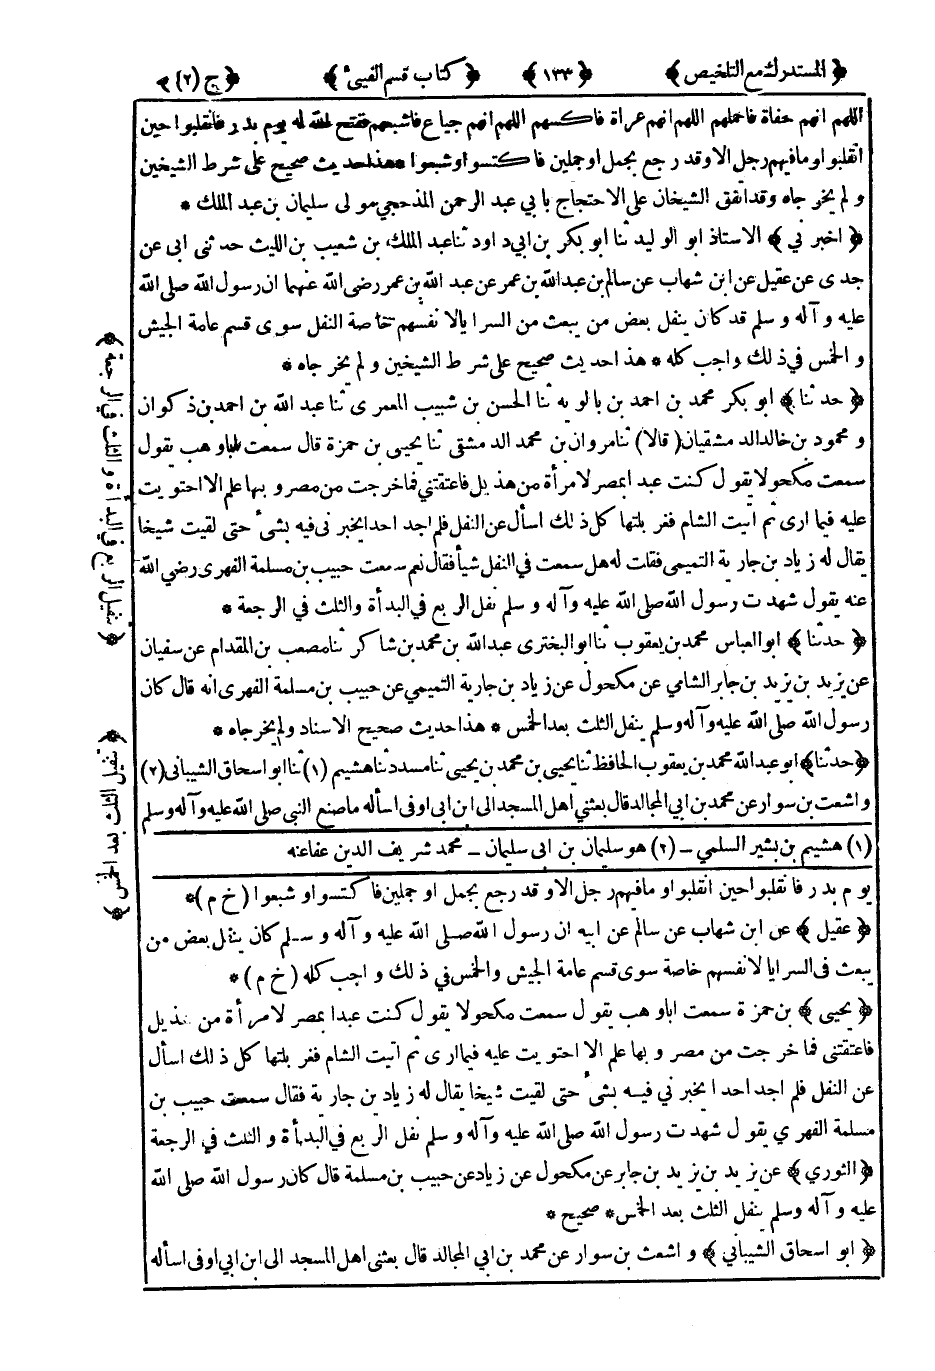 ﴿ المستدرك مع التلخيص ﴾ ﴿ ١٣٣ ﴾ ﴿ كتاب قسم الفيئ ﴾ ﴿ ج (٢) ﴾
اللهم انهم حفاة فاحملهم اللهم انهم عراة فاكسهم اللهم انهم جياع فاشبعهم ففتح الله له يوم بدر فانقلبوا حين
انقلبوا وما فيهم رجل الا وقد رجع بجمل او جملين فاكتسوا وشبعوا هذا حديث صحيح على شرط الشيخين
ولم يخرجاه وقد اتفق الشيخان على الاحتجاج بابي عبد الرحمن المذحجي مولى سليمان بن عبد الملك *
﴿ اخبرني ﴾ الاستاذ ابو الوليد ثنا ابو بكر بن ابي داود ثنا عبد الملك بن شعيب بن الليث حدثني ابى عن
جدى عن عقيل عن ابن شهاب عن سالم بن عبد الله بن عمر عن عبد الله بن عمر رضى الله عنهما ان رسول الله صلى الله
عليه وآله وسلم قد كان ينفل بعض من يبعث من السرايا لا نفسهم خاصة النفل سوى قسم عامة الجيش
والخمس في ذلك واجب كله * هذا حديث صحيح على شرط الشيخين ولم يخرجاه *
﴿ حدثنا ﴾ ابو بكر محمد بن احمد بن بالويه ثنا الحسن بن شبيب المعمرى ثنا عبد الله بن احمد بن ذكوان
ومحمود بن خالد الدمشقيان (قالا) ثنا مروان بن محمد الدمشقى ثنا يحيى بن حمزة قال سمعت ابا وهب يقول
سمعت مكحولا يقول كنت عبدا بمصر لامرأة من هذيل فاعتقتني فما خرجت من مصر وبها علم الا احتويت
عليه فيما ارى ثم اتيت الشام فغربلتها كل ذلك اسأل عن النفل فلم اجد احدا يخبرنى فيه بشئ حتى لقيت شيخا
يقال له زياد بن جارية التميمى فقلت له هل سمعت في النفل شيأ فقال نعم سمعت حبيب بن مسلمة الفهرى رضي الله
عنه يقول شهدت رسول الله صلى الله عليه وآله وسلم نفل الربع في البدأة والثلث في الرجعة *
﴿ حدثنا ﴾ ابو العباس محمد بن يعقوب ثنا ابو البخترى عبد الله بن محمد بن شاكر ثنا مصعب بن المقدام عن سفيان
عن يزيد بن يزيد بن جابر الشامي عن مكحول عن زياد بن جارية التميمي عن حبيب بن مسلمة الفهرى انه قال كان
رسول الله صلى الله عليه وآله وسلم ينفل الثلث بعد الخمس * هذا حديث صحيح الاسناد ولم يخرجاه *
﴿ حدثنا ﴾ ابو عبد الله محمد بن يعقوب الحافظ ثنا يحيى بن محمد بن يحيى ثنا مسدد ثنا هشيم (١) ثنا ابو اسحاق الشيبانى (٢)
واشعث بن سوار عن محمد بن ابي المجالد قال بعثني اهل المسجد الى ابن ابى اوفى اسأله ما صنع النبي صلى الله عليه وآله وسلم
﴿ تنفيل الربع في البدأة والثلث في الرجعة ﴾
﴿ تنفيل الثلث بعد الخمس ﴾
(١) هشيم بن بشير السلمي ـ (٢) هو سليمان بن ابى سليمان ـ محمد شريف الدين عفا عنه
يوم بدر فانقلبوا حين انقلبوا وما فيهم رجل الا وقد رجع بجمل او جملين فاكتسوا وشبعوا (خ م) *
﴿ عقيل ﴾ عن ابن شهاب عن سالم عن ابيه ان رسول الله صلى الله عليه وآله وسلم كان ينفل بعض من
يبعث فى السرايا لا نفسهم خاصة سوى قسم عامة الجيش والخمس في ذلك واجب كله (خ م) *
﴿ يحيى ﴾ بن حمزة سمعت ابا وهب يقول سمعت مكحولا يقول كنت عبدا بمصر لامرأة من هذيل
فاعتقتنى فما خرجت من مصر وبها علم الا احتويت عليه فيما ارى ثم اتيت الشام فغربلتها كل ذلك اسأل
عن النفل فلم اجد احدا يخبرني فيه بشئ حتى لقيت شيخا يقال له زياد بن جارية فقال سمعت حبيب بن
مسلمة الفهري يقول شهدت رسول الله صلى الله عليه وآله وسلم نفل الربع في البدأة والثلث في الرجعة
﴿ الثوري ﴾ عن يزيد بن يزيد بن جابر عن مكحول عن زياد عن حبيب بن مسلمة قال كان رسول الله صلى الله
عليه وآله وسلم ينفل الثلث بعد الخمس * صحيح *
﴿ ابو اسحاق الشيباني ﴾ واشعث بن سوار عن محمد بن ابي المجالد قال بعثنى اهل المسجد الى ابن ابي اوفى اسأله